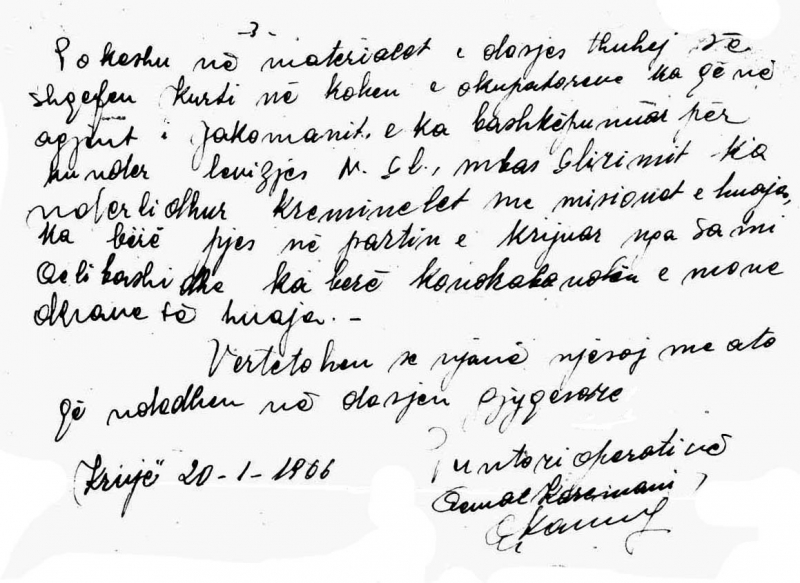 -3-
Po keshu në materialet e dosjes thuhej se
Shqefen Kurti në kohen e okupatoreve ka qenë
agjent i Jakomonit, e ka bashkëpunuar për
kunder levizjes N. Çl., mbas Çlirimit ka
nderlidhur kreminelet me misionet e huaja,
ka bërë pjes në partin e krijuar nga Sami
Qeli bashi dhe ka berë e mone
dhave të huaja. -
Vertetohen se njanë njesoj me ato
që ndodhen në dosjen gjygesore
Krujë 20-1-1966
Puntori operativë
Qemal